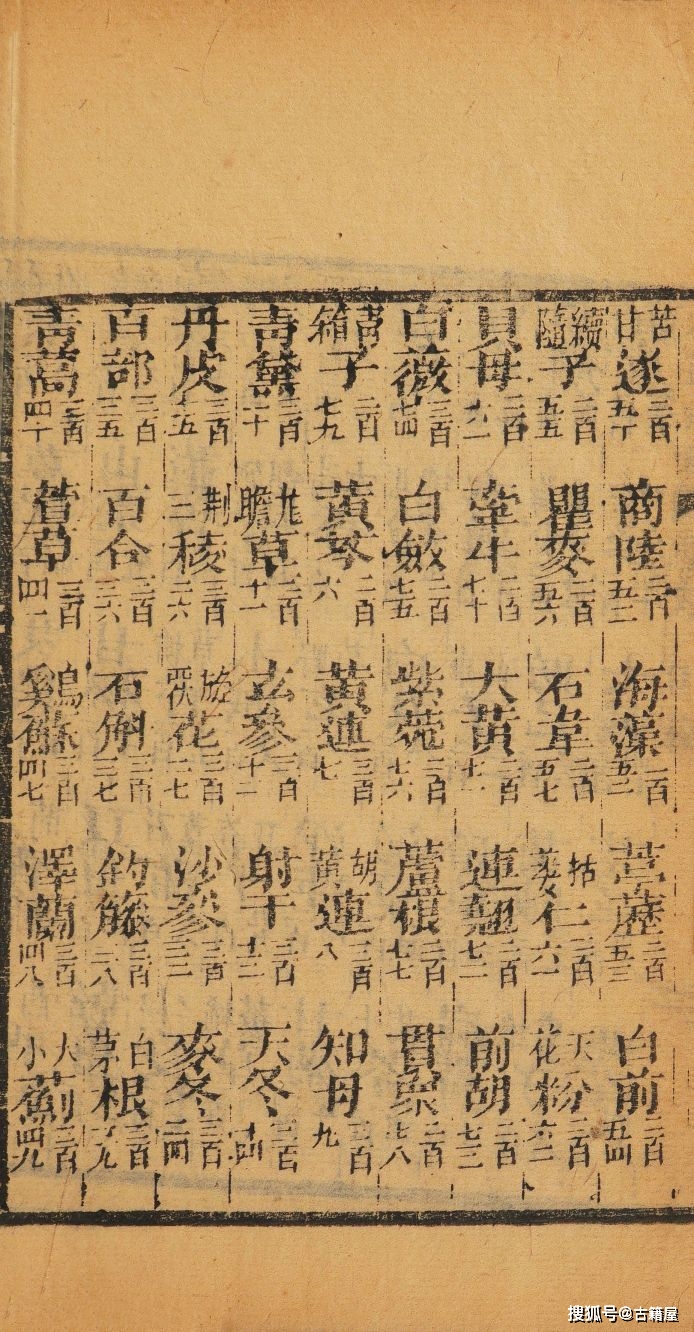 苦甘遂二百五十 商陸二百五一 海藻二百五二 葶藶二百五三 白前二百五四
續隨子二百五五 瞿麥二百五六 石韋二百五七 括蔞仁二百六一 天花粉二百六二
貝母二百六 牽牛二百七十 大黃二百七一 連翹二百七二 前胡二百七三
白薇二百七四 白斂二百七五 紫菀二百七六 蘆根二百七七 貫衆二百七八
青箱子二百七九 黃芩三百六 黃連三百七 胡黃連三百八 知母三百九
青黛三百十 龙膽草三百十一 玄參三百十二 射干三百十三 天冬三百十四
丹皮三百十五 荆三稜三百二六 旋花三百二七 沙參三百三 麥冬三百
百部三百三五 百合三百三六 石斛三百三七 釣藤三百三八 白茅根三百三九
青蒿三百四十 萱草三百四一 鷄蘇三百四七 澤蘭三百四八 大小薊三百四九
搜狐号@古籍屋